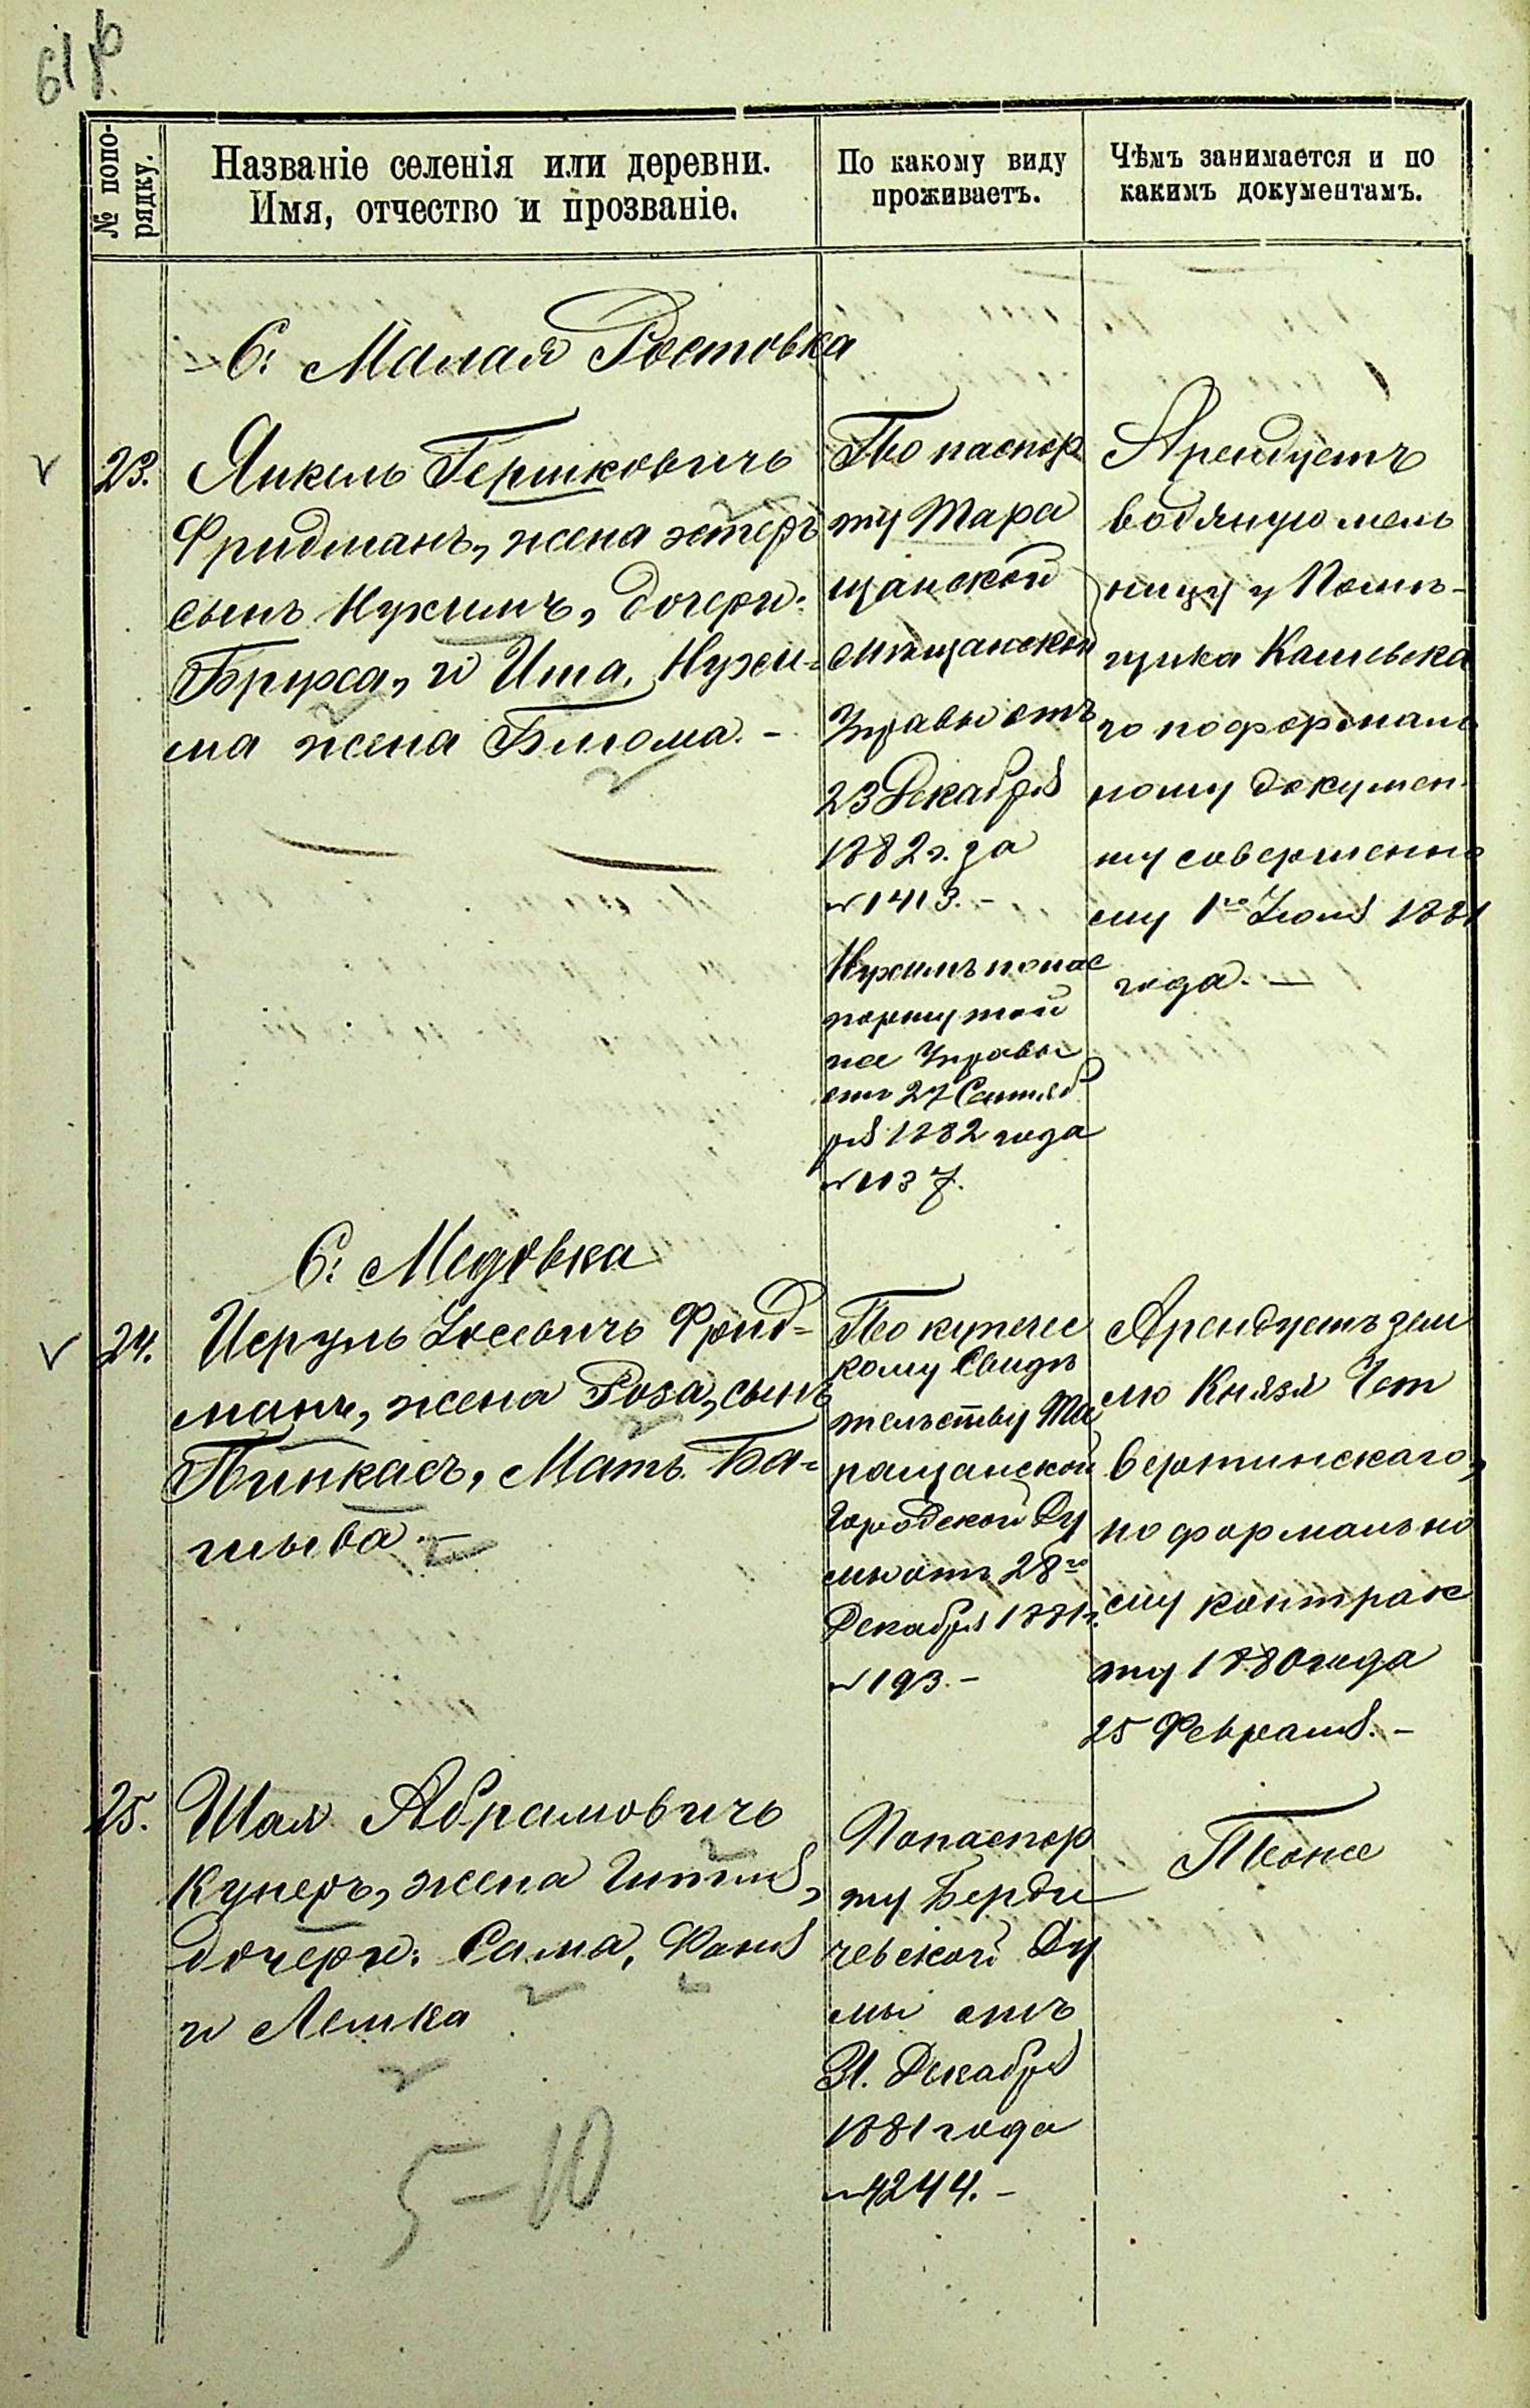 61 об
№ попо-
рядку.
Названіе селенія или деревни.
Имя, отчество и прозваніе.
По какому виду
проживаетъ.
Чѣмъ занимается и по
какимъ документамъ.
С: Малая Ростовка
23.
Янкель Гершковичъ
Фридманъ, жена Эстеръ
сынъ Нухимъ, дочери:
Бруха, и Ита, Нухи-
ма жена Блюма. -
По паспор
ту Тара
щанской
мѣщанской
Управы отъ
23 Декабря
1882 г. за
№ 1413. -
Нухимъ по пас
порту той
же Управы
отъ 27 Сентяб
ря 1882 года
№ 1137.
Арендуетъ
водяную мель
ницу у Помѣ-
щика
го по формаль
ному докумен
ту совершенно
му 1го Іюля 1881
года. —
С: Медовка
24.
Исруль Іосевичъ Фрид-
манъ, жена Роза, сынъ
Пинкасъ, Мать Ба-
тшыва -
По купечес
кому Свидѣ
тельству Та
ращанской
Городской Ду
мы отъ 28го
Декабря 1881 г.
№ 193. -
Арендуетъ зем
лю Князя Чет
вертинскаго,
по формально
му контрак
ту 1880 года
25 Февраля. -
25.
Шая Абрамовичъ
Куперъ, жена Гитля,
дочери: Сима, Фаня
и Лешка
По паспор
ту Берди
чевской Ду
мы отъ
31. Декабря
1881 года
№ 4244. -
Тоже
5-10